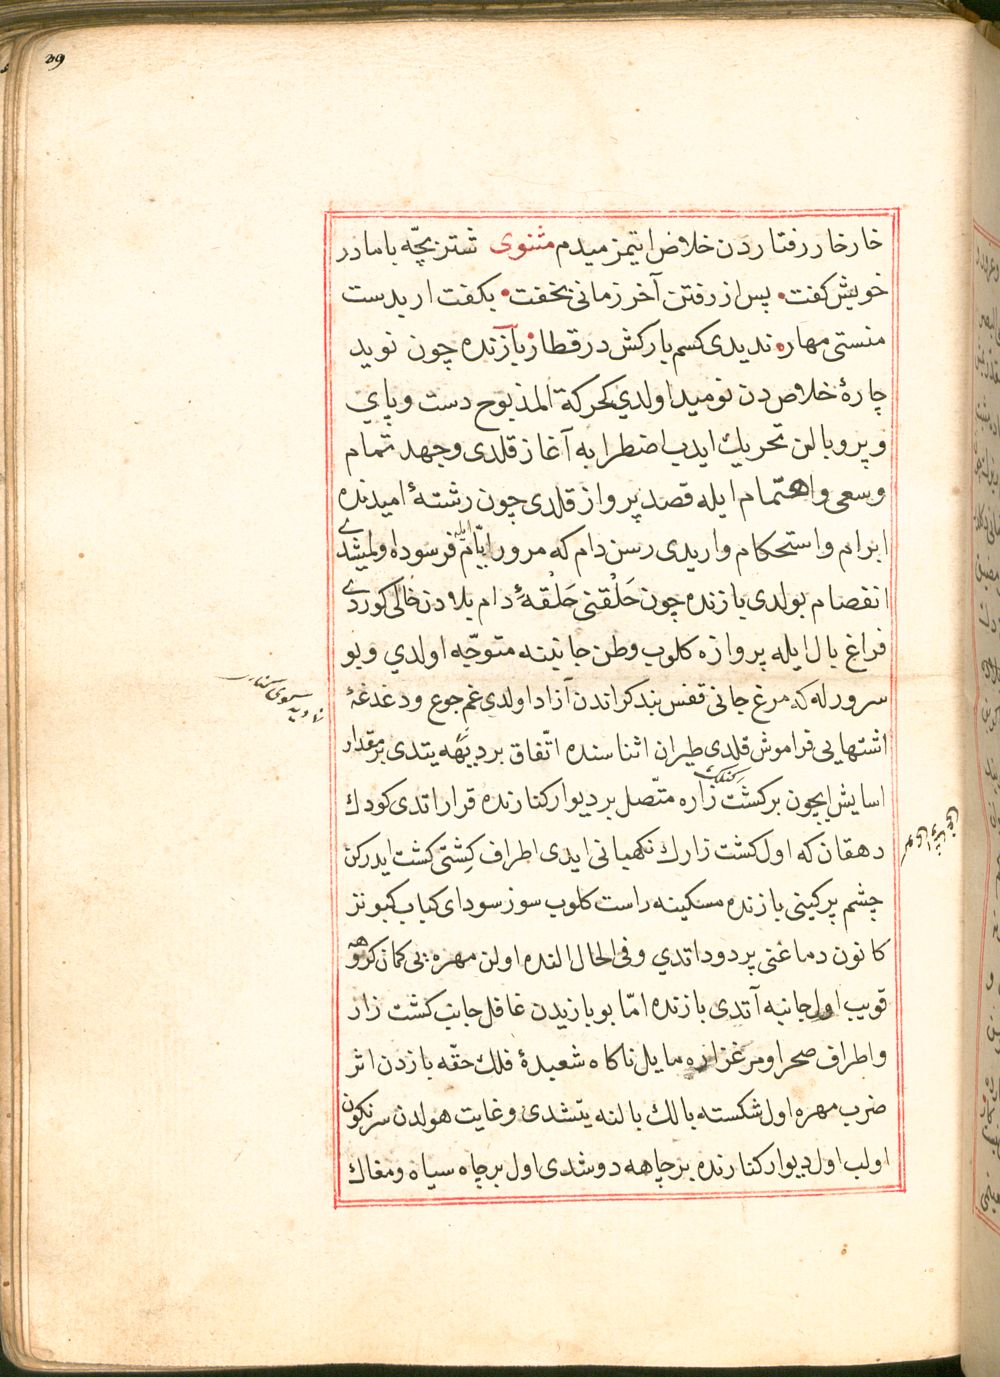 خار خار رفتاردن خلاص ایتمزمیدم مثنوی شتر بچّه با مادر
خویش کفت • پس از رفتن آخر زمانی بخفت • بکفت ار بدست
منستی مهار • ندیدی کسم بارکش در قطار بازنده چون نوید
چارهٔ خلاص دن نومید اولدی کحرکة المذبوح دست و پای
و پر و بالن تحریك ایدب اضطرابه آغاز قلدی و جهد تمام
و سعی و اهتمام ایله قصد پرواز قلدی چون رشتهٔ امیدنده
ابرام و استحکام واریدی رسن دام که مرور ایّام ایله فرسوده اولمیشدی
انفصام بولدی بازنده چون حَلْقنی حَلْقهٔ دام بلادن خالی کوردی
فراغ بال ایله پروازه کلوب وطن جانبنه متوجّه اولدی و بو
سرورله که مرغ جانی قفس بند کراندن آزاد اولدی غم جوع و دغدغهٔ
اشتهایی فراموش قلدی طیران اثناسنده اتّفاق بر دیهه یتدی بر مقدار
اسایش ایچون بر کشت زاره متّصل بر دیوار کنارنده قرار اتدی کودك
دهقان که اول کشت زارك نکهبانی ایدی اطراف کِشتی کشت ایدرکن
چشم پرکینی بازنده مسکینه راست کلوب سوز سودای کباب کبوتر
کانون دماغنی پردود اتدی و فی الحال النده اولن مهره یی کمان کروهه
قویب اول جانبه آتدی بازنده امّا بو بازیدن غافل جانب کشت زار
و اطراف صحرا و مرغزاره مایل ناکاه شعبدهٔ فلك حقّه بازدن اثر
ضرب مهره اول شکسته بالك بالنه یتشدی و غایت هولدن سرنکون
اولب اول دیوار کنارنده بر چاهه دوشدی اول بر چاه سیاه و مغاك